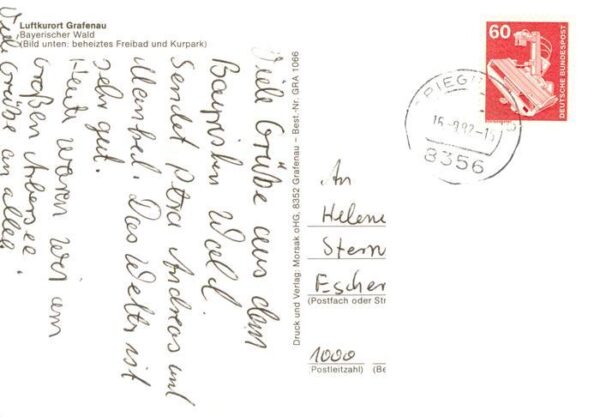 Luftkurort Grafenau
Bayerischer Wald
(Bild unten: beheiztes Freibad und Kurpark)
Viele Grüße aus dem
Bayrishen Wald.
Sendet Petra Andreas und
Manfred. Das Wetter ist
sehr gut.
Heute waren wir am
großen Arbersee.
Viele Grüße an alle
Druck und Verlag: Morsak oHG, 8352 Grafenau – Best.-Nr. GRA 1066
60
DEUTSCHE BUNDESPOST
8356
An
Helene
Stern
Escher
(Postfach oder Str
1000
(Postleitzahl) (Be